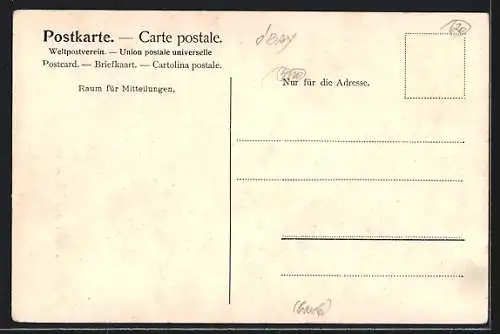 Postkarte. — Carte postale.
Weltpostverein. — Union postale universelle
Postcard. — Briefkaart. — Cartolina postale.
Raum für Mitteilungen.
Nur für die Adresse.